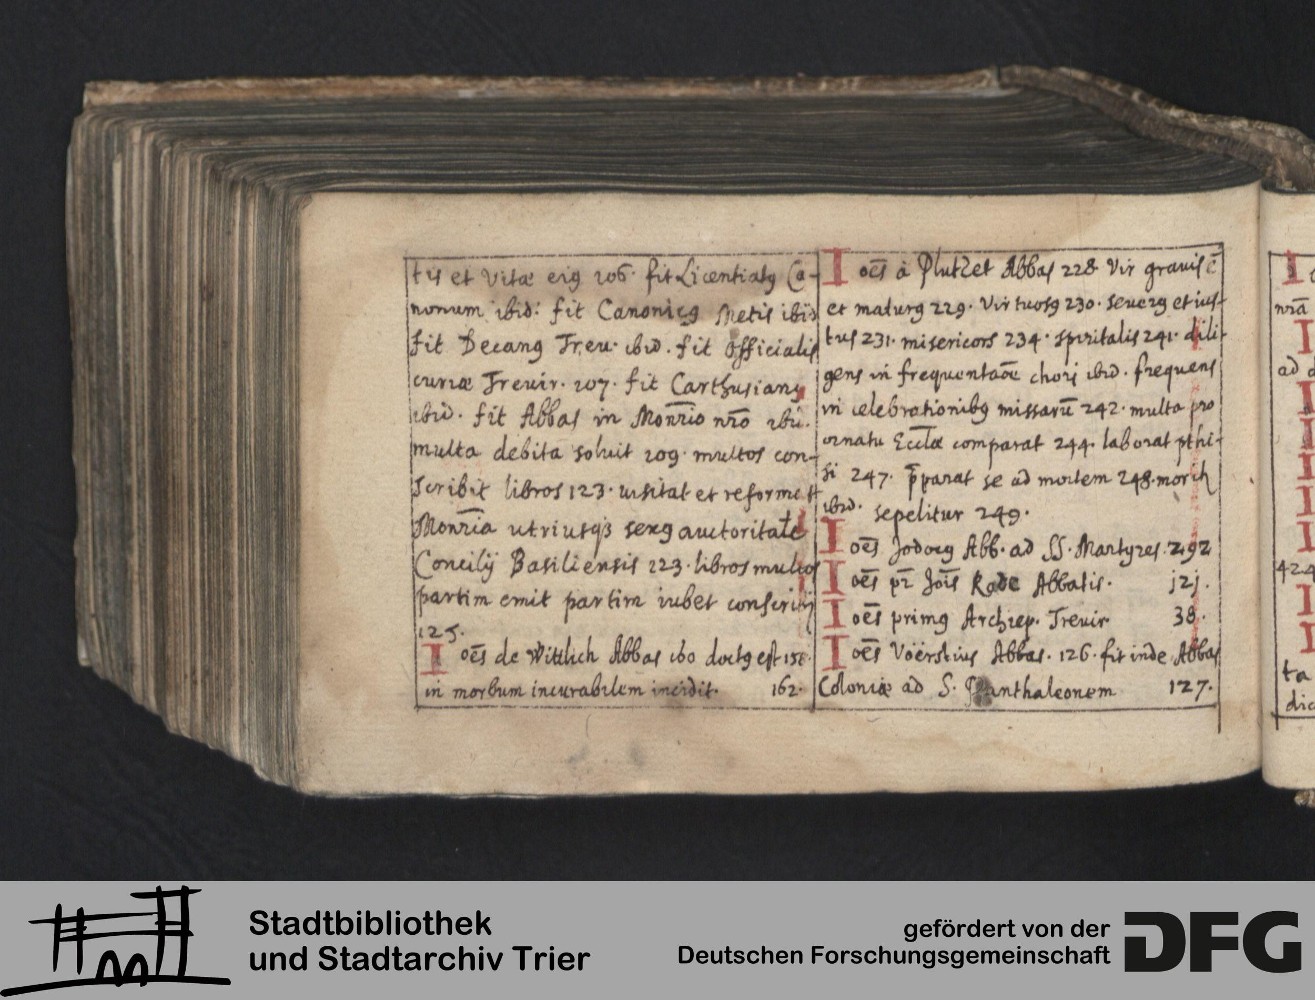 tus et vitæ eius 206. fit Licentiatus Ca-
nonum ibid: fit Canonicus Metis ibid
fit Decanus Treu. ibid. fit officialis
curiæ Trevir. 207. fit Carthusianus
ibid. fit Abbas in Monrio nro ibid.
multa debita soluit 209. multos con-
scribit libros 123. visitat et reformat
Monria utriusque sexus auctoritate
Concilij Basiliensis 123. libros multos
partim emit partim iubet conscribi
125.
Ioes de Wittlich Abbas 160 doctus est
in morbum incurabilem incidit. 162.
Ioes à Plutzet Abbas 228. Vir grauis ē
et madurus 229. Virtuosus 230. seuerus et ius-
tus 231. misericors 234. spiritalis 241. dili-
gens in frequentaōe chori ibid. frequens
in celebrationibus missarū 242. multa pro
ornatu Eccłæ comparat 244. laborat pthi-
si 247. p̄parat se ad mortem 248. morit
ibid. sepelitur 249.
Ioēs Jodocus Abb. ad SS. Martyres. 292
Ioēs pr̄ Joīs Rode Abbatis. 121.
Ioēs primus Archiep. Trevir. 38.
Ioēs Voërstius Abbas. 126. fit inde Abbas
Coloniæ ad S. Panthaleonem 127.
nrā
ad
424
ta
dic
Stadtbibliothek
und Stadtarchiv Trier
gefördert von der
Deutschen Forschungsgemeinschaft
DFG